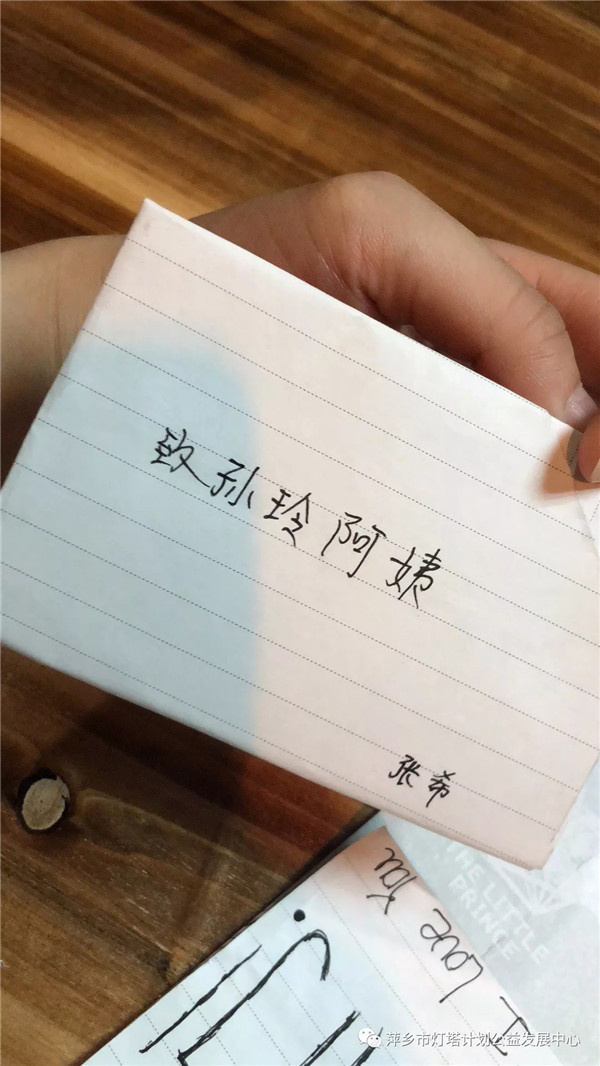 致孙玲阿姨
张希
I Love You
THE LITTLE
PRINCE
萍乡市灯塔计划公益发展中心